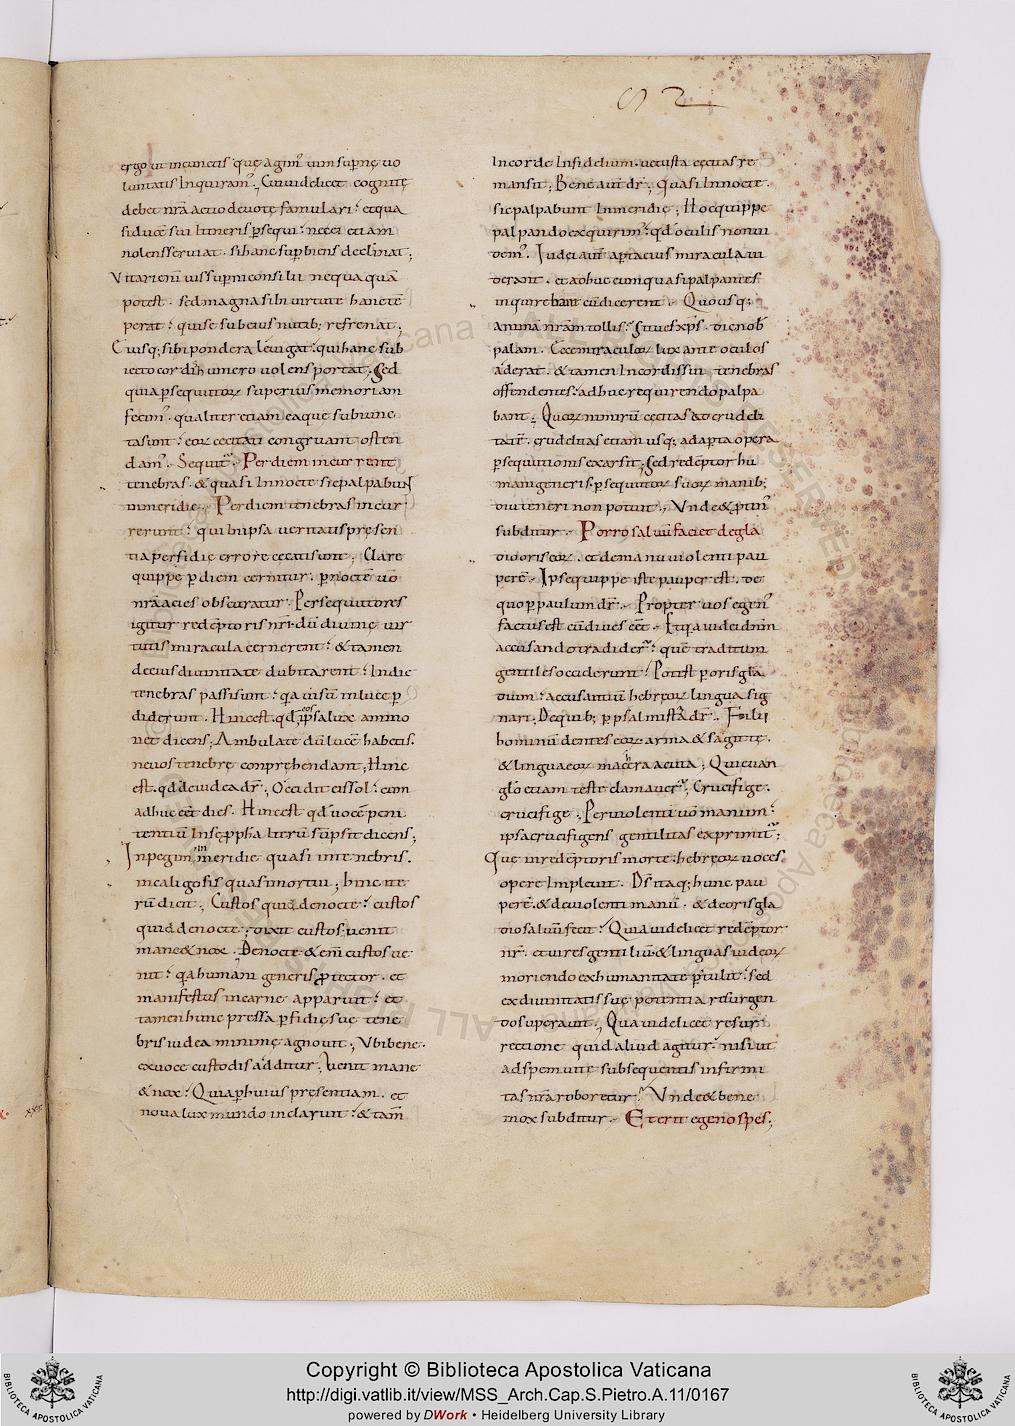 ergo ut in cunctis que agim' vim supernę vo
luntatis Inquiram'. Cui videlicet cognitę
debet nr̄a actio devote famulari: et qua
si ducē sui Itineris p̄sequi: ne ei etiam
nolens serviat. si hanc sup̄biens declinat;
Vitari eni vis sup̄ni consilii nequaquā
potest. sed magna sibi virtute hanc tē
perat: qui se sub eius nutib; refrenat;
Eiusq; sibi pondera levigat: qui hanc sub
iecto cordis humero volens portat. Sed
quia p̄sequutoꝝ superius memoriam
fecim'. qualiter etiam ea que subiunc
ta sunt: eoꝝ cecitati congruant osten
dam'. Sequit'. Per diem incurrent
tenebras. & quasi In nocte sic palpabunt
in meridie. Per diem tenebras incur
rerunt: qui In ipsa veritatis presen
tia perfidię errore cecati sunt. Clare
quippe p̄ diem cernitur. p̄ noctē vō
nr̄a acies obscuratur. Persequutores
igitur redēptoris nr̄i. dū divinę vir
tutis miracula cernerent: & tamen
de eius divinitate dubitarent: In die
tenebras passi sunt: q̄a visū in luce p̄
diderunt. Hinc est. qd̄ eos ipsa lux ammo
net dicens; Ambulate dū lucē habetis.
ne vos tenebrę comprehendant; Hinc
est. qd̄ de iudea dr̄; Occidit ei sol: cum
adhuc eēt dies. Hinc est qd̄ vocē peni
tentiū In se p̄pha Iterū sūpsit dicens;
Inpegim' in meridie quasi in tenebris.
in caligosis quasi mortui; hinc ite
rū dicit. Custos quid de nocte: custos
quid de nocte; dixit custos venit
mane & nox. De nocte & enī custos ve
nit: q̄a humani generis p̄tector. et
manifestus in carne apparuit: et
tamen hunc pressa p̄fidię suę tene
bris iudea minime agnovit; Ubi bene
ex voce custodis additur. Venit mane
& nox: Quia p̄ huius presentiam. et
nova lux mundo inclaruit: & tam̄
In corde Infidelium. vetusta cecitas re
mansit; Bene aut̄ dr̄; Quasi In nocte.
sic palpabunt In meridie; Hoc quippe
palpando exquirim': qd̄ oculis non vi
dem'. Iudei aut̄ ap̄ta eius miracula vi
derant. et adhuc eum quasi palpantes
inquirebant cū dicerent. Quousq;
animā nr̄am tollis: si tu es xp̄s. dic nob̄
palam. Ecce miraculoꝝ lux ante oculos
aderat. & tamen In cordis sui tenebras
offendentes: adhuc requirendo palpa
bant; Quoꝝ nimirū cecitas ad crudeli
tatē. crudelitas etiam usq; ad ap̄ta opera
p̄sequutionis exarsit; Sed redēptor hu
mani generis. p̄sequutoꝝ suoꝝ manib;
diu teneri non potuit; Unde & p̄tin'
subditur. Porro salvū faciet de gla
dio oris eoꝝ. et de manu violenti pau
perē. Ipse quippe iste pauper est. de
quo p̄ paulum dr̄. Propter vos egen'
factus est cū dives eēt. Et quia iudei dn̄m
accusando tradider': quē traditum
gentiles occiderunt: Potest p̄ oris gla
dium: accusantiū hebreoꝝ lingua sig
nari; De quib; p̄ psalmistā dr̄. Filii
hominū dentes eoꝝ arma & sagittę.
& lingua eoꝝ machera acuta; Qui evan
glō etiam teste clamaver'; Crucifige.
crucifige. Per violentū vō manum:
ipsa crucifigens gentilitas exprimit';
Que in redēptoris morte: hebreoꝝ voces
opere Implevit. Dsˉ itaq; hunc pau
perē. & de violenti manū. & de oris gla
dio salvū fecit: Quia videlicet redēptor
nr̄. et vires gentiliū. & linguas iudeoꝝ
moriendo ex humanitate p̄tulit: sed
ex divinitatis suę potentia resurgen
do superavit; Qua videlicet resur
rectione quid aliud agitur: nisi ut
ad spem vite subsequentis infirmi
tas nr̄a roboretur. Unde & bene
mox subditur. Et erit egeno spes;
Copyright © Biblioteca Apostolica Vaticana
http://digi.vatlib.it/view/MSS_Arch.Cap.S.Pietro.A.11/0167
powered by DWork • Heidelberg University Library
BIBLIOTECA APOSTOLICA VATICANA
BIBLIOTECA APOSTOLICA VATICANA